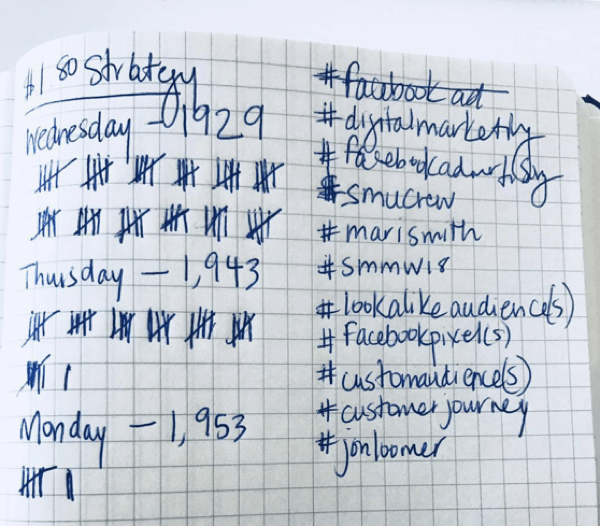 $1.80 Strategy
Wednesday - 1929
Thursday - 1,943
Monday - 1,953
#facebook ad
#digitalmarketing
#facebookadvertising
#smucrew
#marismith
#smmw18
#lookalikeaudience(s)
#facebookpixel(s)
#customaudience(s)
#customerjourney
#jonloomer